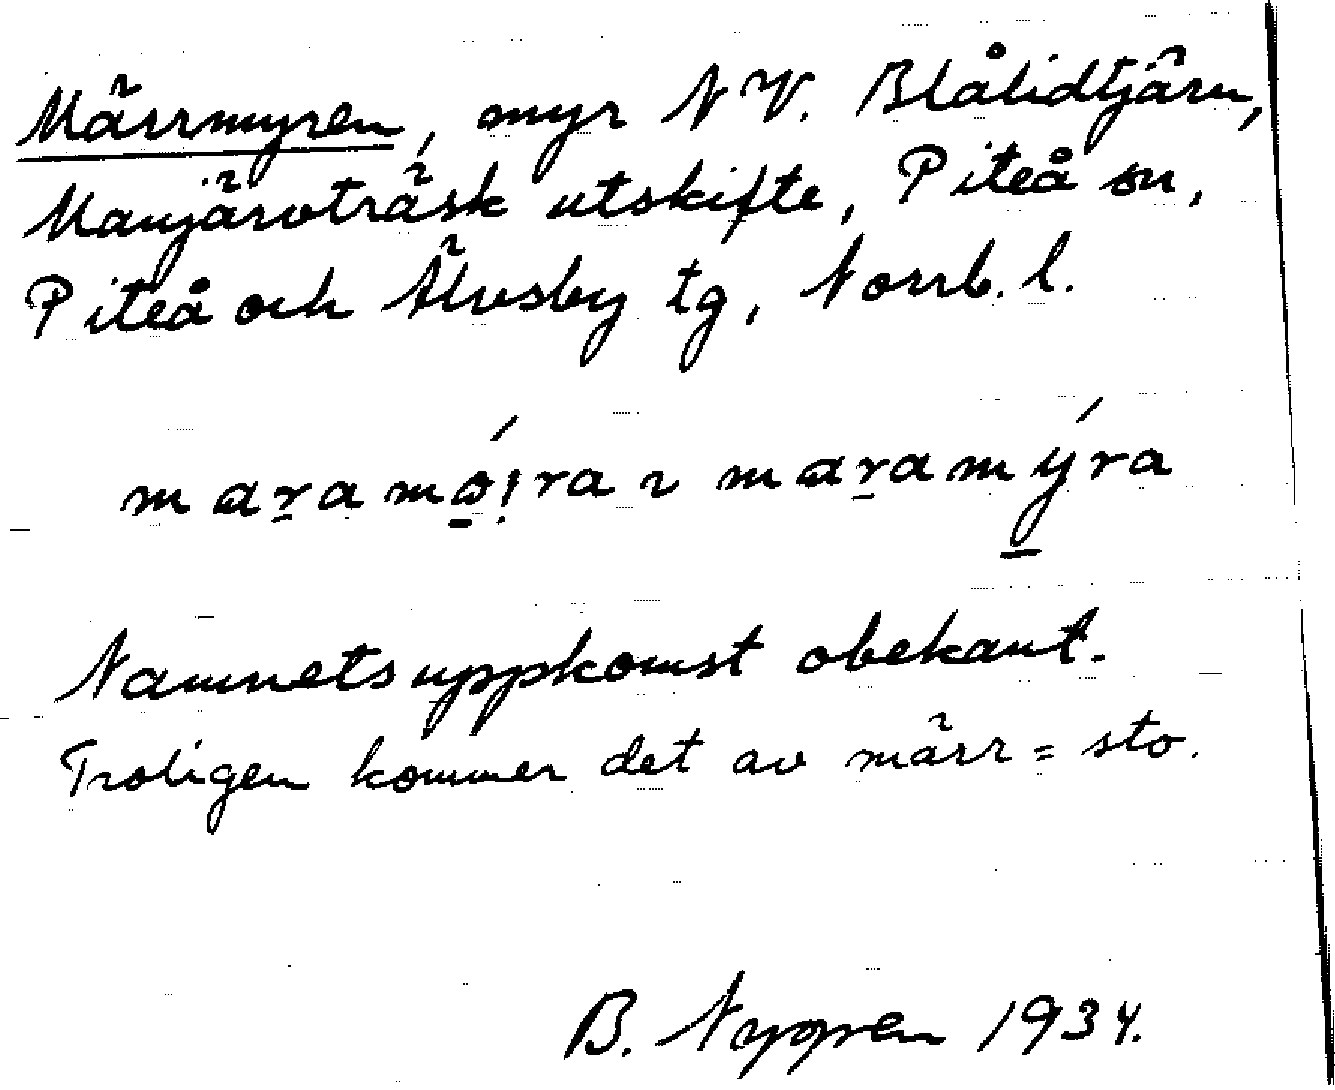 Märrmyren, myr NV. Blålidtjärn,
Manjärvträsk utskifte, Piteå sn,
Piteå och Älvsby tg, Norrb. l.
maṟamǿ̱i̯ra ~ maṟamý̱ra
Namnets uppkomst obekant.
Troligen kommer det av märr = sto.
B. Nygren 1934.